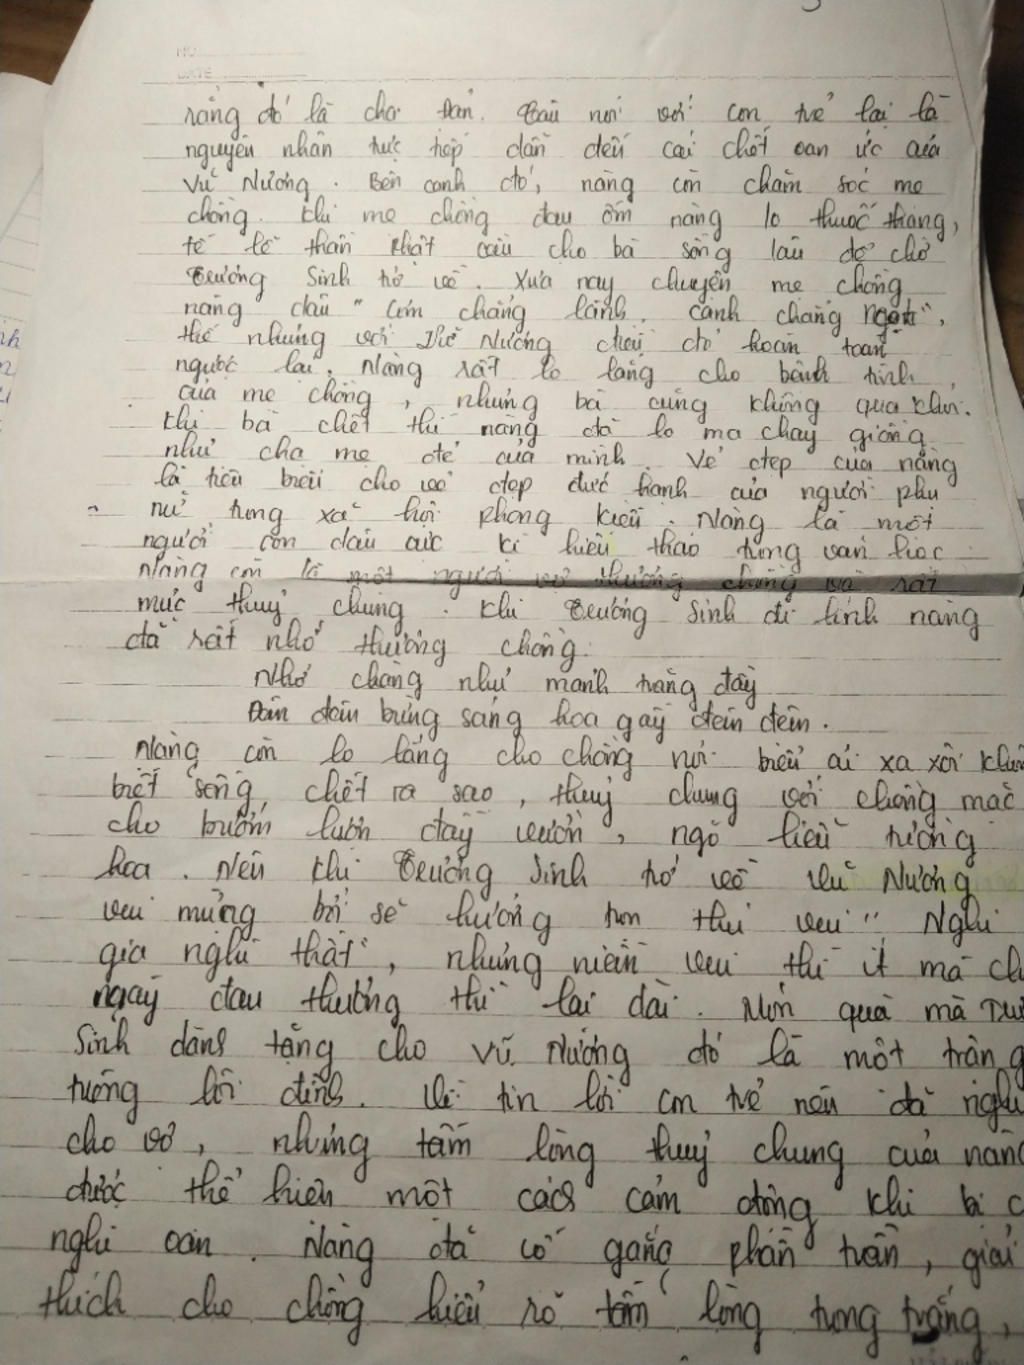 NO
DATE
rằng đó là cha Đản. Câu nói với con trẻ lại là
nguyên nhân trực tiếp dẫn đến cái chết oan ức của
Vũ Nương. Bên cạnh đó, nàng còn chăm sóc mẹ
chồng. Khi mẹ chồng đau ốm nàng lo thuốc thang,
tế lễ thần phật cầu cho bà sống lâu để chờ
Trương Sinh trở về. Xưa nay chuyện mẹ chồng
nàng dâu "Cơm chẳng lành, canh chẳng ngọt",
thế nhưng với Vũ Nương thì hoàn toàn
ngược lại. Nàng rất lo lắng cho bệnh tình
của mẹ chồng, nhưng bà cũng không qua khỏi.
Khi bà chết thì nàng đã lo ma chay giống
như cha mẹ đẻ của mình. Vẻ đẹp của nàng
là tiêu biểu cho vẻ đẹp đức hạnh của người phụ
nữ trong xã hội phong kiến. Nàng là một
người con dâu cực kì hiếu thảo trong văn học
Nàng còn là một người vợ thương chồng và rất
mực thuỷ chung. Khi Trương Sinh đi lính nàng
đã rất nhớ thương chồng.
Nhớ chàng như mảnh trăng đầy
Đêm đêm bừng sáng hoa gầy đêm đêm.
Nàng còn lo lắng cho chồng nơi biên ải xa xôi
biết sống chết ra sao, thuỷ chung với chồng mặc
cho bướm lượn đầy vườn, ngõ liễu tường
hoa. Nên khi Trương Sinh trở về Vũ Nương
vui mừng bởi sẽ hưởng trọn thú vui "Nghi
gia nghi thất", nhưng niềm vui thì ít mà
ngày đau thương thì lại dài. Món quà mà
Sinh dành tặng cho Vũ Nương đó là một trận
tuông lôi đình. Vì tin lời con trẻ nên đã nghi
cho vợ, nhưng tấm lòng thuỷ chung của nàng
được thể hiện một cách cảm động khi bị
nghi oan. Nàng đã cố gắng phân trần, giải
thích cho chồng hiểu rõ tấm lòng trong trắng,